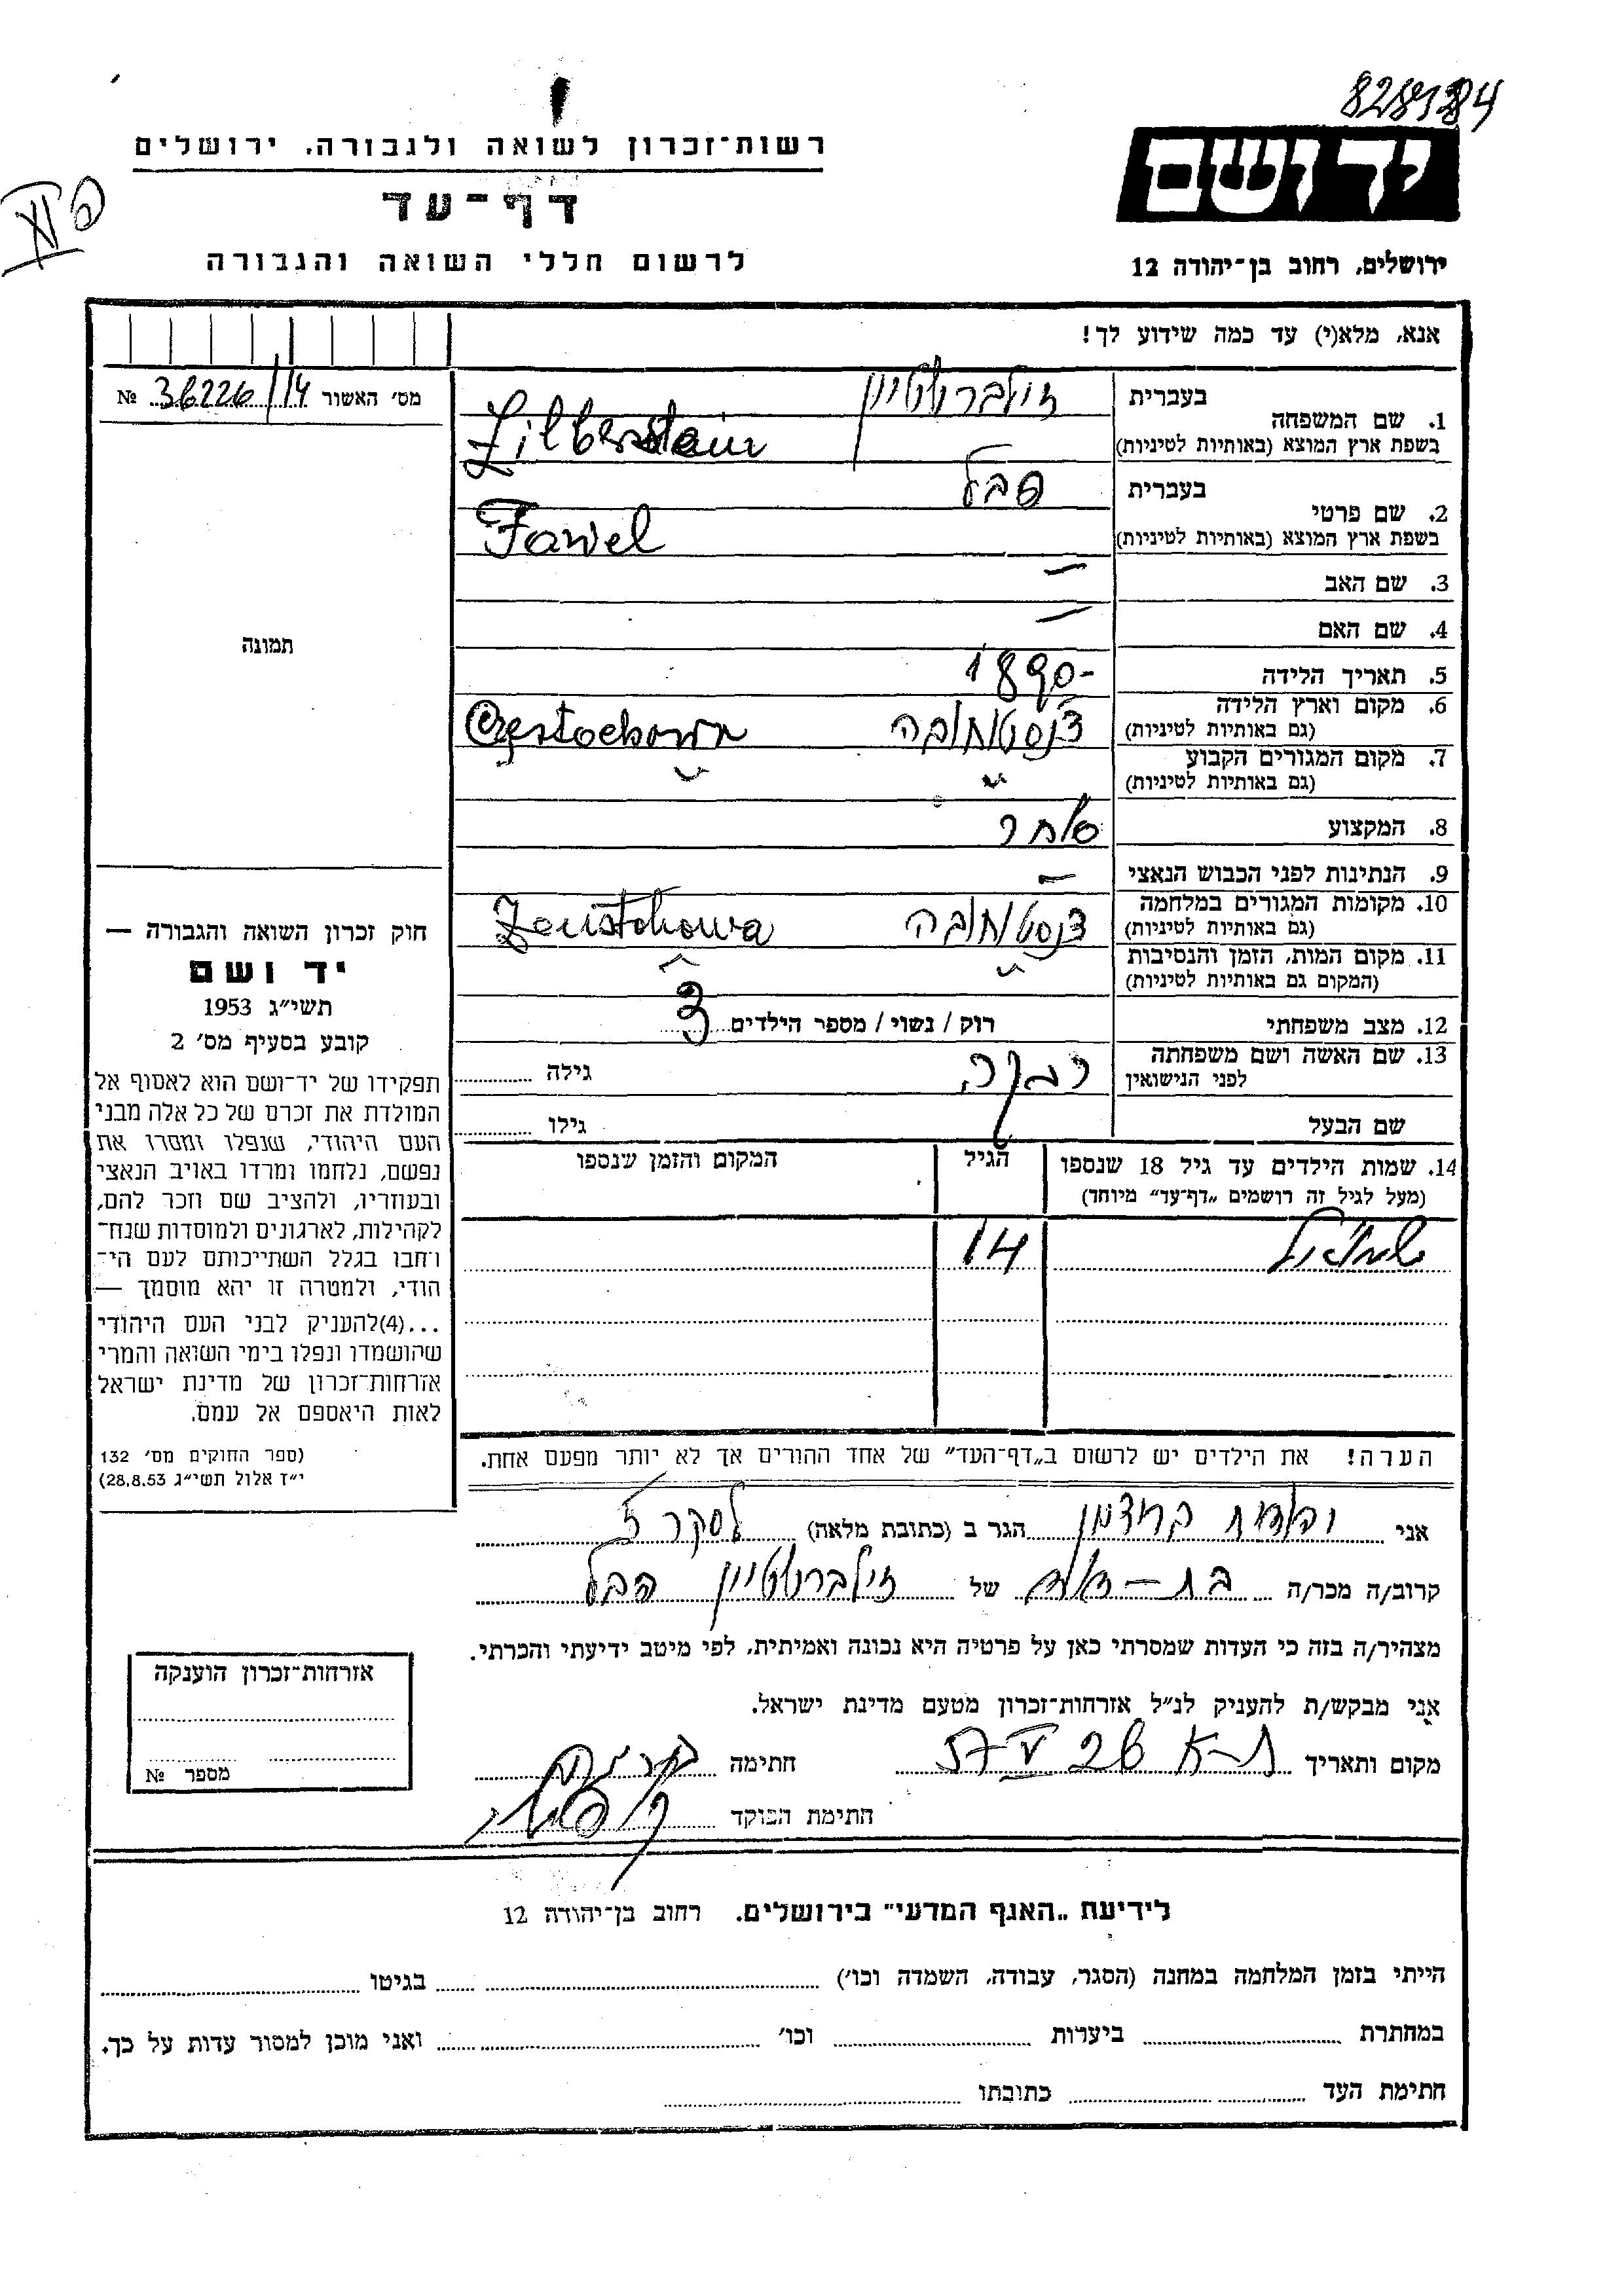 828134
רשות־זכרון לשואה ולגבורה, ירושלים
דף־עד
לרשום חללי השואה והגבורה
יד ושם
ירושלים, רחוב בן־יהודה 12
אנא, מלא(י) עד כמה שידוע לך!
מס׳ האשור 36226/14 №
תמונה
1. שם המשפחה
בעברית זילברשטיין
בשפת ארץ המוצא (באותיות לטיניות) Zilberstein
2. שם פרטי
בעברית
בשפת ארץ המוצא (באותיות לטיניות) Fawel
3. שם האב —
4. שם האם —
5. תאריך הלידה 1890-
6. מקום וארץ הלידה
(גם באותיות לטיניות) צ'נסטוחובה Częstochowa
7. מקום המגורים הקבוע
(גם באותיות לטיניות) " "
8. המקצוע סוחר
9. הנתינות לפני הכבוש הנאצי —
10. מקומות המגורים במלחמה
(גם באותיות לטיניות) צ'נסטוחובה Zenstchowa
11. מקום המות, הזמן והנסיבות
(המקום גם באותיות לטיניות) " "
12. מצב משפחתי רוק / נשוי / מספר הילדים 3
13. שם האשה ושם משפחתה
לפני הנישואין רבקה גילה
שם הבעל גילו
14. שמות הילדים עד גיל 18 שנספו
(מעל לגיל זה רושמים „דף־עד״ מיוחד)
הגיל
המקום והזמן שנספו
14
הערה! את הילדים יש לרשום ב„דף־העד״ של אחד ההורים אך לא יותר מפעם אחת.
חוק זכרון השואה והגבורה —
יד ושם
תשי״ג 1953
קובע בסעיף מס׳ 2
תפקידו של יד־ושם הוא לאסוף אל
המולדת את זכרם של כל אלה מבני
העם היהודי, שנפלו ומסרו את
נפשם, נלחמו ומרדו באויב הנאצי
ובעוזריו, ולהציב שם וזכר להם,
לקהילות, לארגונים ולמוסדות שנח־
רחבו בגלל השתייכותם לעם הי־
הודי, ולמטרה זו יהא מוסמך —
...(4)להעניק לבני העם היהודי
שהושמדו ונפלו בימי השואה והמרי
אזרחות־זכרון של מדינת ישראל
לאות היאספם אל עמם.
(ספר החוקים מס׳ 132
י״ז אלול תשי״ג 28.8.53)
אני הגר ב (כתובת מלאה)
קרוב/ה מכר/ה של זילברשטיין
מצהיר/ה בזה כי העדות שמסרתי כאן על פרטיה היא נכונה ואמיתית, לפי מיטב ידיעתי והכרתי.
אני מבקש/ת להעניק לנ״ל אזרחות־זכרון מטעם מדינת ישראל.
מקום ותאריך ת-א חתימה
חתימת הפוקד
אזרחות־זכרון הוענקה
מספר №
לידיעת „האגף המדעי״ בירושלים. רחוב בן־יהודה 12
הייתי בזמן המלחמה במחנה (הסגר, עבודה, השמדה וכו׳) בגיטו
במחתרת ביערות וכו׳ ואני מוכן למסור עדות על כך.
חתימת העד כתובתו